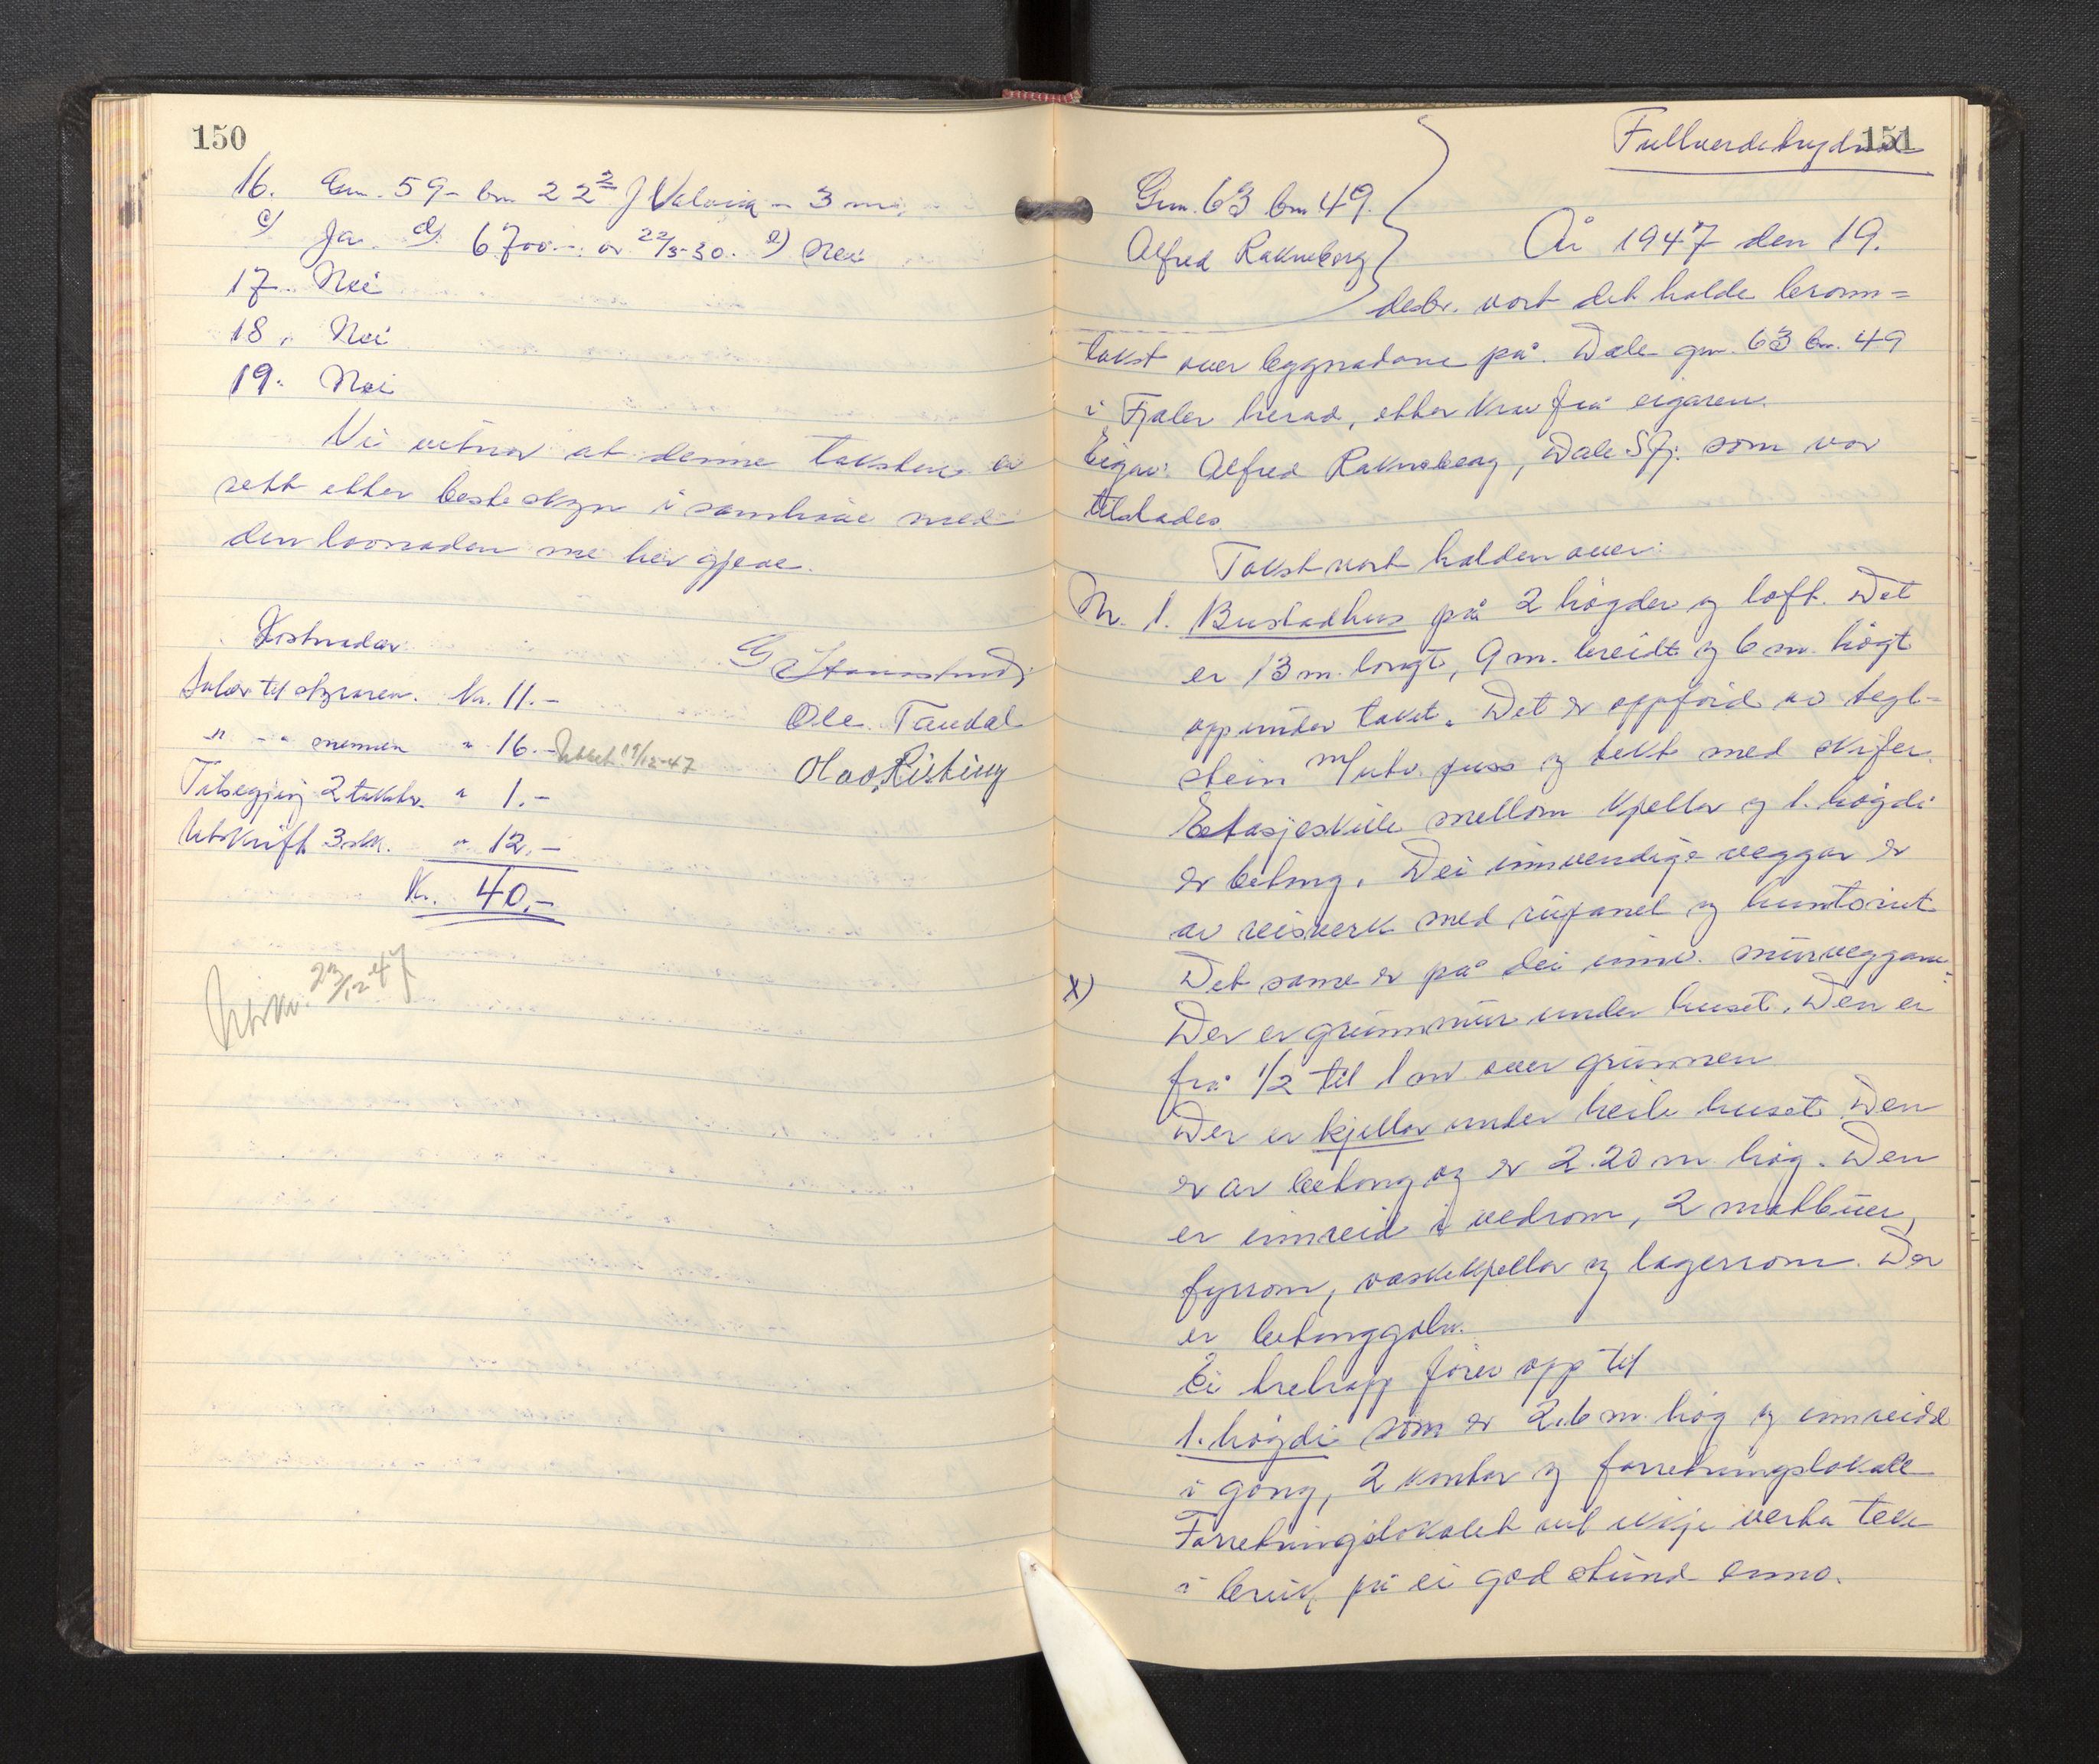 150
16. Gnr. 59 - bnr. 22² J Valvik - 3 m.
c) Ja. d) 6700.- av 22/3-30. e) Nei
17. Nei
18. Nei
19. Nei
Vi vitnar at denne taksten er
sett etter beste skyn i samhøve med
den lovnaden me her gjeve.
Kostnadar
Salær til styraren. Kr. 11.-
" - " mennen " 16.- Utbet 19/12-47
Tilsegjing 2 takstm. " 1.-
Utskrift 3 stk. " 12.-
Kr. 40,-
G
Ole Tandal
Olav Risting
Utskr. 23/12 47
151
Fullverdebrygdnad
Gnr. 63 bnr 49.
Alfred Rakneberg
År 1947 den 19.
desbr. vart det halde brann=
takst over bygnadane på Dale gnr. 63 bnr. 49
i Fjaler herad, etter krav frå eigaren.
Eigar: Alfred Rakneberg, Dale Sfj. som var
tilstades.
Takst vart halden over:
Nr. 1. Bustadhus på 2 høgder og loft. Det
er 13 m. langt, 9 m. breidt og 6 m. høgt
opp under taket. Det er oppførd av tegl-
stein m/utv. puss og tekt med skifer.
Etasjeskile mellom kjellar og 1. høgdi
er betong. Dei innvendige veggar er
av reisverk med rupanel og huntonit
Det same er på dei innv. murveggane.
x)
Der er grunnmur under huset. Den er
frå 1/2 til 1 m over grunnen
Der er kjellar under heile huset. Den
er av betong og er 2.20 m høg. Den
er innreid i vedrom, 2 matbuer,
fyrrom, vaskekjellar og lagerrom. Der
er betonggolv.
Ei tretrapp fører opp til
1. høgdi som er 2.6 m. høg og innreidd
i gang, 2 kontor og forretningslokale
Forretningslokalet vil ikkje verta teke
i bruk på ei god stund enno.